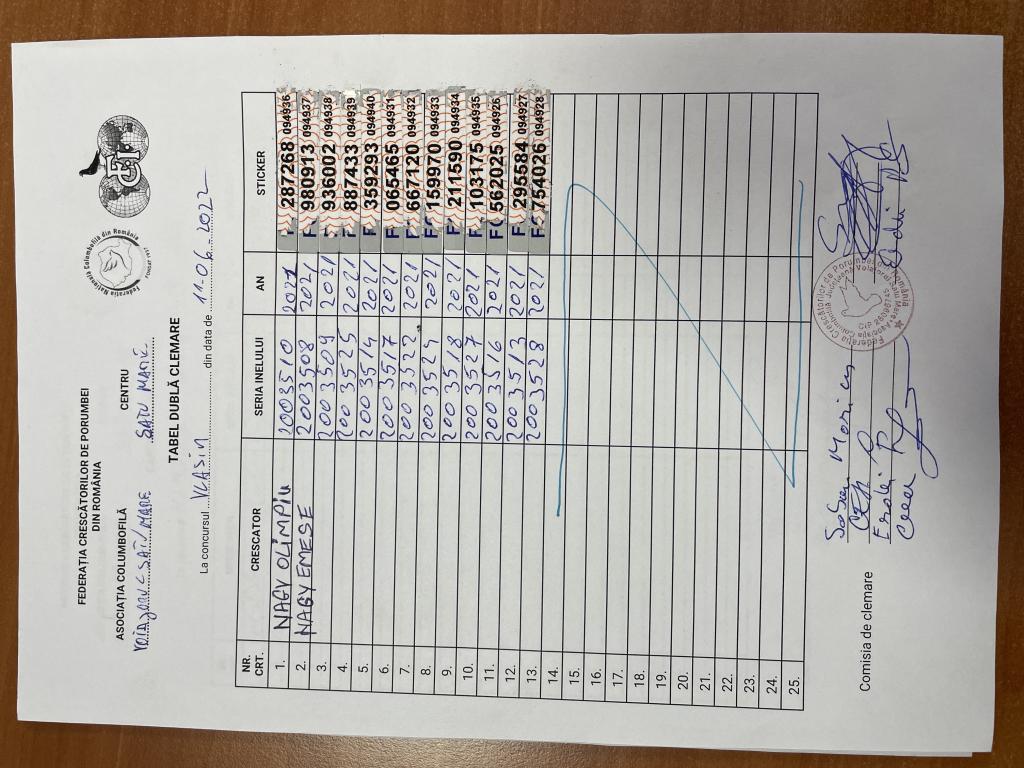 FEDERAȚIA CRESCĂTORILOR DE PORUMBEI
DIN ROMÂNIA
Federația Națională Columbofilă din România
FCI
ASOCIAȚIA COLUMBOFILĂ CENTRU
SATU MARE
TABEL DUBLĂ CLEMARE
La concursul VLASIN din data de 11-06-2022
NR. CRT. CRESCATOR SERIA INELULUI AN STICKER
1. NAGY OLIMPIU 2003510 2021 287268 094936
2. NAGY EMESE 2003508 2021 980913 094937
3. 2003509 2021 936002 094938
4. 2003525 2021 887433 094939
5. 2003514 2021 359293 094940
6. 2003517 2021 065465 094931
7. 2003522 2021 667120 094932
8. 2003524 2021 159970 094933
9. 2003518 2021 211590 094934
10. 2003527 2021 103175 094935
11. 2003516 2021 562025 094926
12. 2003513 2021 295584 094927
13. 2003528 2021 754026 094928
14.
15.
16.
17.
18.
19.
20.
21.
22.
23.
24.
25.
Comisia de clemare